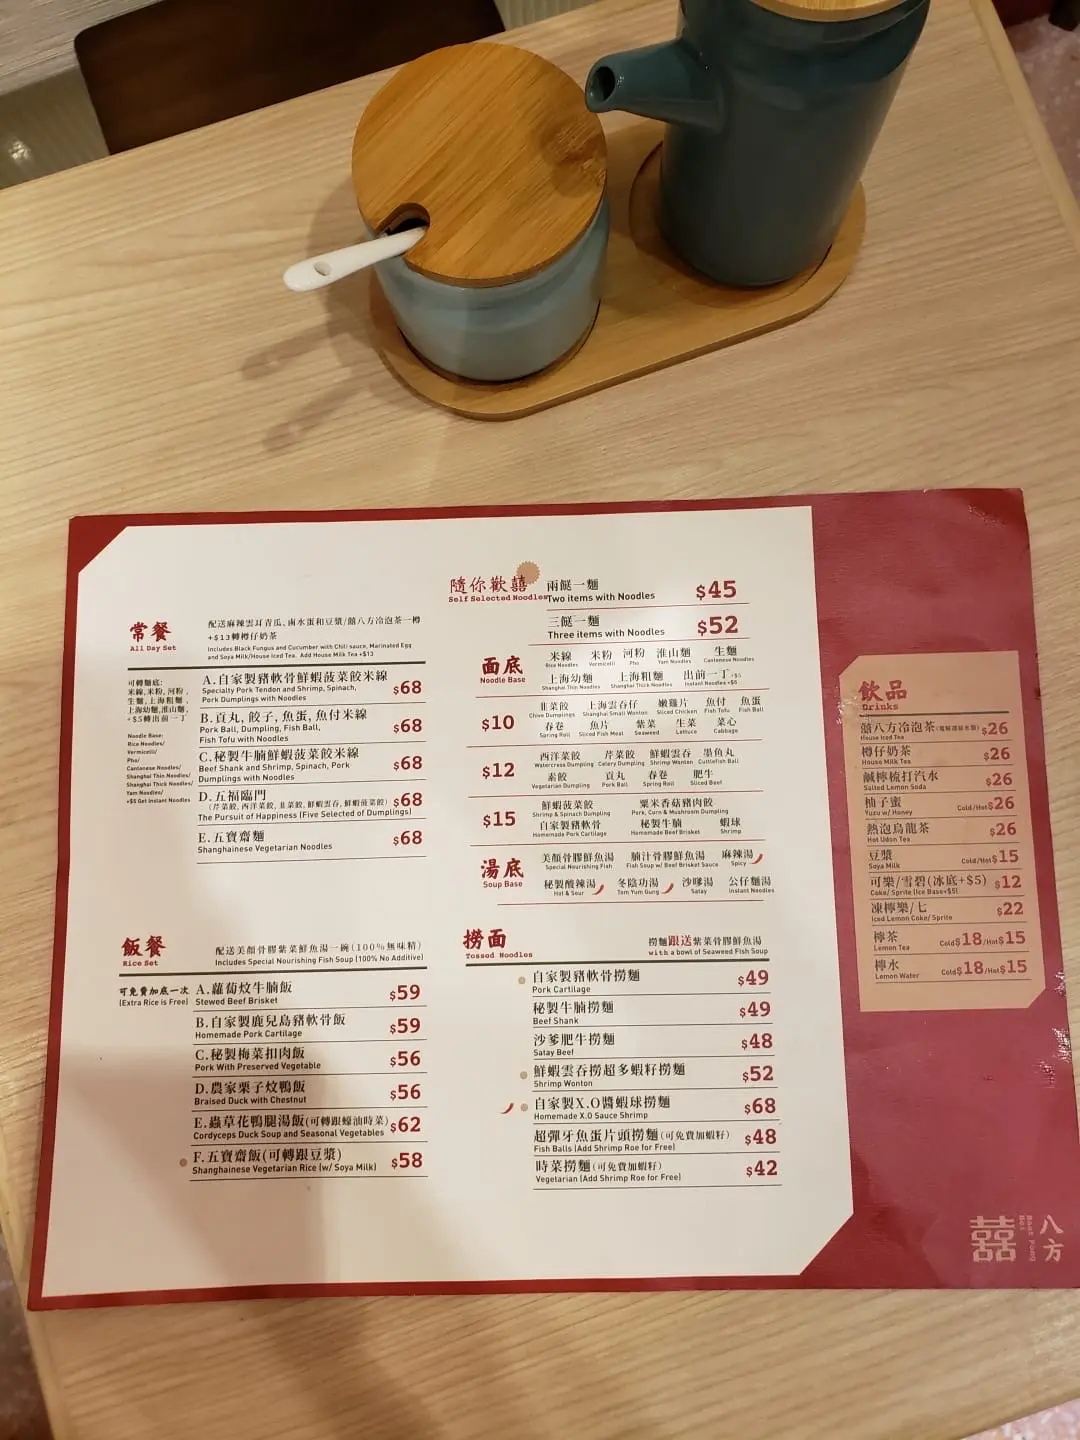 常餐
All Day Set
配送麻辣雲耳青瓜、鹵水蛋和豆漿/囍八方冷泡茶一樽
+$13轉樽仔奶茶
Includes Black Fungus and Cucumber with Chili sauce, Marinated Egg
and Soya Milk/House Iced Tea. Add House Milk Tea +$13
可轉麵底:
米線,米粉,河粉,
生麵,上海粗麵,
上海幼麵,淮山麵,
+$5轉出前一丁
Noodle Base:
Rice Noodles/
Vermicelli/
Pho/
Cantonese Noodles/
Shanghai Thin Noodles/
Shanghai Thick Noodles/
Yam Noodles/
+$5 Get Instant Noodles
A.自家製豬軟骨鮮蝦菠菜餃米線
Specialty Pork Tendon and Shrimp, Spinach,
Pork Dumplings with Noodles
$68
B.貢丸, 餃子, 魚蛋, 魚付米線
Pork Ball, Dumpling, Fish Ball,
Fish Tofu with Noodles
$68
C.秘製牛腩鮮蝦菠菜餃米線
Beef Shank and Shrimp, Spinach, Pork
Dumplings with Noodles
$68
D.五福臨門
(芹菜餃, 西洋菜餃, 韭菜餃, 鮮蝦雲吞, 鮮蝦菠菜餃)
The Pursuit of Happiness (Five Selected of Dumplings)
$68
E.五寶齋麵
Shanghainese Vegetarian Noodles
$68
飯餐
Rice Set
配送美顏骨膠紫菜鮮魚湯一碗(100%無味精)
Includes Special Nourishing Fish Soup (100% No Additive)
可免費加底一次
(Extra Rice is Free)
A.蘿蔔炆牛腩飯
Stewed Beef Brisket
$59
B.自家製鹿兒島豬軟骨飯
Homemade Pork Cartilage
$59
C.秘製梅菜扣肉飯
Pork With Preserved Vegetable
$56
D.農家栗子炆鴨飯
Braised Duck with Chestnut
$56
E.蟲草花鴨腿湯飯(可轉跟蠔油時菜)
Cordyceps Duck Soup and Seasonal Vegetables
$62
F.五寶齋飯(可轉跟豆漿)
Shanghainese Vegetarian Rice (w/ Soya Milk)
$58
隨你歡囍
Self Selected Noodles
兩餸一麵
Two items with Noodles
$45
三餸一麵
Three items with Noodles
$52
面底
Noodle Base
米線 米粉 河粉 淮山麵 生麵
Rice Noodles Vermicelli Pho Yam Noodles Cantonese Noodles
上海幼麵 上海粗麵 出前一丁+$5
Shanghai Thin Noodles Shanghai Thick Noodles Instant Noodles +$5
$10
韭菜餃 上海雲吞仔 嫩雞片 魚付 魚蛋
Chive Dumplings Shanghai Small Wonton Sliced Chicken Fish Tofu Fish Ball
春卷 魚片 紫菜 生菜 菜心
Spring Roll Sliced Fish Meat Seaweed Lettuce Cabbage
$12
西洋菜餃 芹菜餃 鮮蝦雲吞 墨魚丸
Watercress Dumpling Celery Dumpling Shrimp Wonton Cuttlefish Ball
素餃 貢丸 春卷 肥牛
Vegetarian Dumpling Pork Ball Spring Roll Sliced Beef
$15
鮮蝦菠菜餃 粟米香菇豬肉餃
Shrimp & Spinach Dumpling Pork, Corn & Mushroom Dumpling
自家製豬軟骨 秘製牛腩 蝦球
Homemade Pork Cartilage Homemade Beef Brisket Shrimp
湯底
Soup Base
美顏骨膠鮮魚湯 腩汁骨膠鮮魚湯 麻辣湯
Special Nourishing Fish Fish Soup w/ Beef Brisket Sauce Spicy
秘製酸辣湯 冬陰功湯 沙嗲湯 公仔麵湯
Hot & Sour Tom Yum Gung Satay Instant Noodles
撈面
Tossed Noodles
撈麵跟送紫菜骨膠鮮魚湯
with a bowl of Seaweed Fish Soup
自家製豬軟骨撈麵
Pork Cartilage
$49
秘製牛腩撈麵
Beef Shank
$49
沙爹肥牛撈麵
Satay Beef
$48
鮮蝦雲吞撈超多蝦籽撈麵
Shrimp Wonton
$52
自家製X.O醬蝦球撈麵
Homemade X.O Sauce Shrimp
$68
超彈牙魚蛋片頭撈麵(可免費加蝦籽)
Fish Balls (Add Shrimp Roe for Free)
$48
時菜撈麵(可免費加蝦籽)
Vegetarian (Add Shrimp Roe for Free)
$42
飲品
Drinks
囍八方冷泡茶
House Iced Tea
$26
樽仔奶茶
House Milk Tea
$26
鹹檸梳打汽水
Salted Lemon Soda
$26
柚子蜜
Yuzu w/ Honey
Cold/Hot$26
熱泡烏龍茶
Hot Udon Tea
$26
豆漿
Soya Milk
Cold/Hot$15
可樂/雪碧(冰底+$5)
Coke/ Sprite (Ice Base+$5)
$12
凍檸樂/七
Iced Lemon Coke/ Sprite
$22
檸茶
Lemon Tea
Cold$18/Hot$15
檸水
Lemon Water
Cold$18/Hot$15
囍
八方